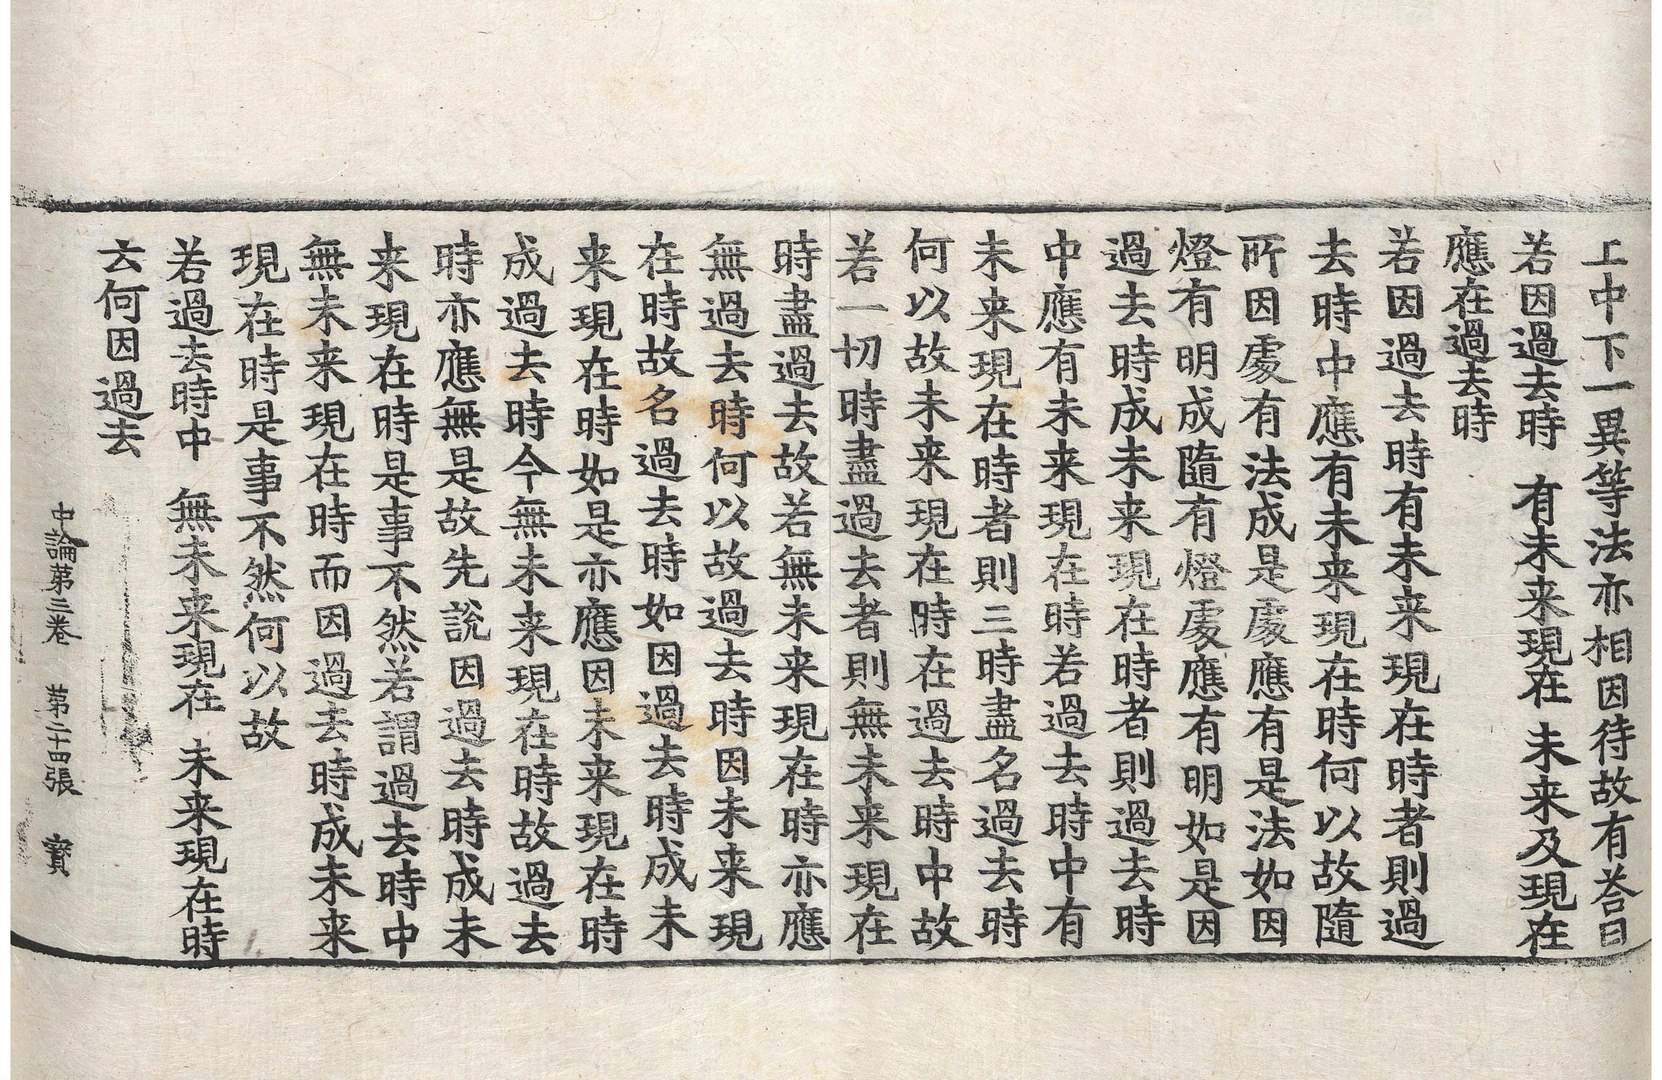 上中下一異等法亦相因待故有荅曰
若因過去時 有未来現在 未来及現在
應在過去時
若因過去時有未来現在時者則過
去時中應有未来現在時何以故隨
所因處有法成是處應有是法如因
燈有明成隨有燈處應有明如是因
過去時成未来現在時者則過去時
中應有未来現在時若過去時中有
未来現在時者則三時盡名過去時
何以故未来現在時在過去時中故
若一切時盡過去者則無未来現在
時盡過去故若無未来現在時亦應
無過去時何以故過去時因未来現
在時故名過去時如因過去時成未
来現在時如是亦應因未来現在時
成過去時今無未来現在時故過去
時亦應無是故先說因過去時成未
来現在時是事不然若謂過去時中
無未来現在時而因過去時成未来
現在時是事不然何以故
若過去時中 無未来現在 未来現在時
云何因過去
中論第三卷 第二十四張 寳